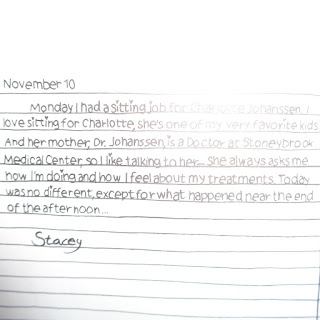 November 10
Monday I had a sitting job for Charlotte Johanssen. I
love sitting for Charlotte, she's one of my very favorite kids
And her mother, Dr. Johanssen, is a Doctor at Stoneybrook
Medical Center, so I like talking to her... She always asks me
how I'm doing and how I feel about my treatments. Today
was no different, except for what happened near the end
of the afternoon...
Stacey